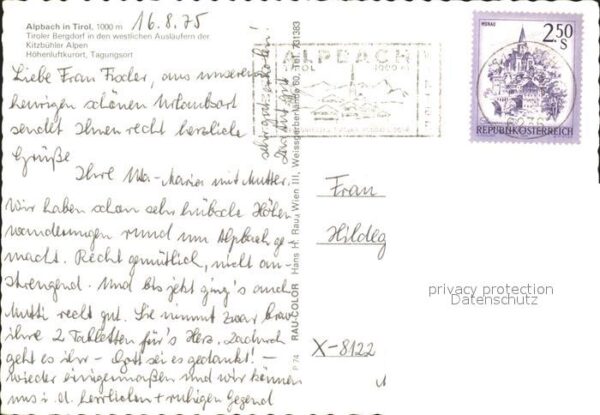 Alpbach in Tirol, 1000 m 16.8.75
Tiroler Bergdorf in den westlichen Ausläufern der
Kitzbühler Alpen
Höhenluftkurort, Tagungsort
Liebe Frau Fischer, aus unserem
heurigen schönen Urlaubsort
sendet Ihnen recht herzliche
Grüße
Ihre Ida-Maria mit Mutter.
Wir haben schon sehr hübsche Höhen
wanderungen rund um Alpbach ge
macht. Recht gemütlich, nicht an-
strengend. Und bis jetzt ging's auch
Mutti recht gut. Sie nimmt zwar brav
ihre 2 Tabletten für's Herz. Dadurch
geht es ihr - Gott sei es gedankt! -
wieder einigermaßen und wir können
uns i. d. herrlichen + ruhigen Gegend
sehr gut erholen!
P 74 RAU-COLOR Hans H. Rau, Wien III, Weissgerberlände 50, Tel. 731383
ALPBACH
TIROL 1000 m
MURAU
2.50
S
REPUBLIK ÖSTERREICH
6236
Frau
Hildeg
privacy protection
Datenschutz
X-8122